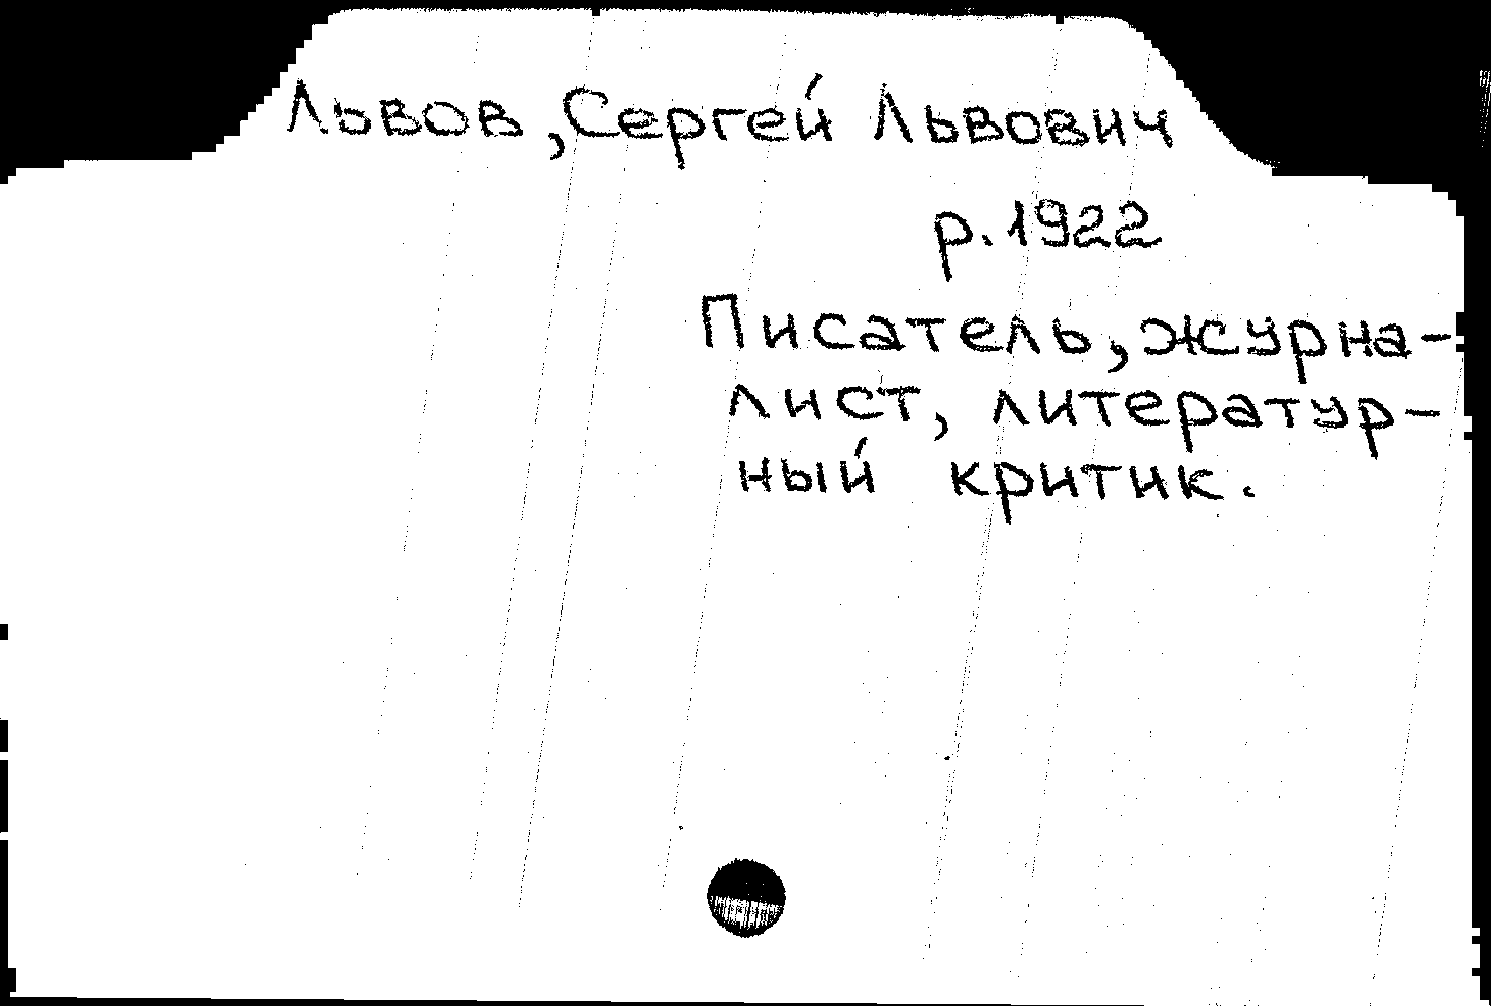 Львов, Сергей Львович
р. 1922
Писатель, журна-
лист, литератур-
ный критик.